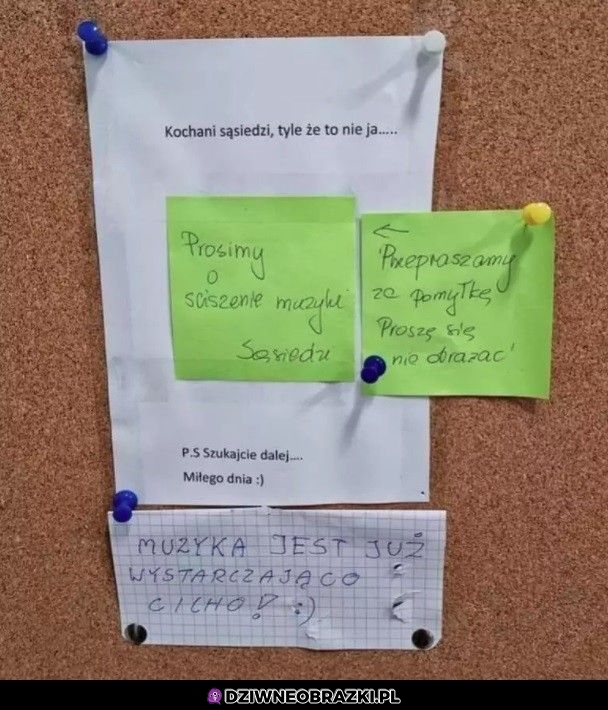 Kochani sąsiedzi, tyle że to nie ja.....
Prosimy
o
sciszenie muzyki
Sąsiedzi
←
Przepraszamy
za pomyłkę
Proszę się
nie obrażać'
P.S Szukajcie dalej....
Miłego dnia :)
MUZYKA JEST JUŻ
WYSTARCZAJĄCO
CICHO! :)
DZIWNEOBRAZKI.PL